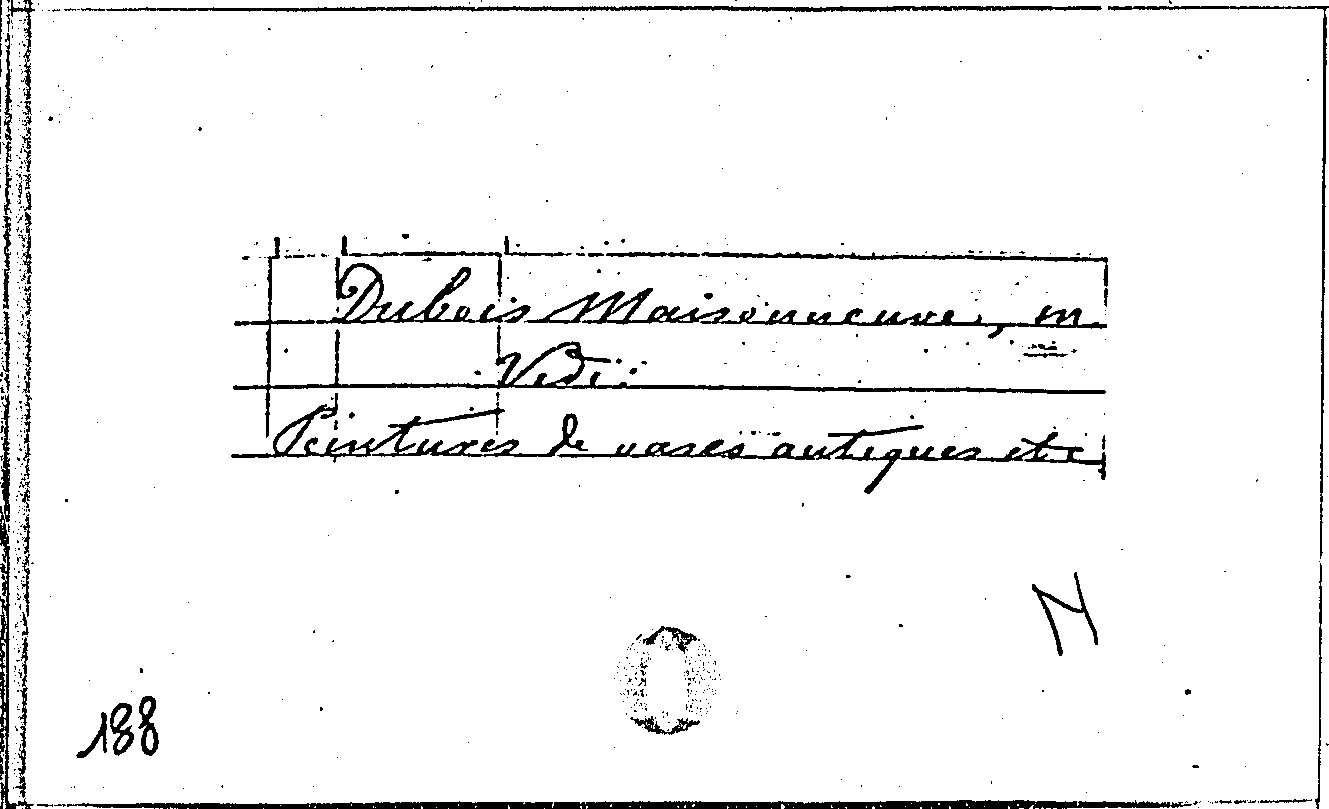 Dubois Maisonneuve, m.
Vide:
Peintures de vases antiques etc
N
188